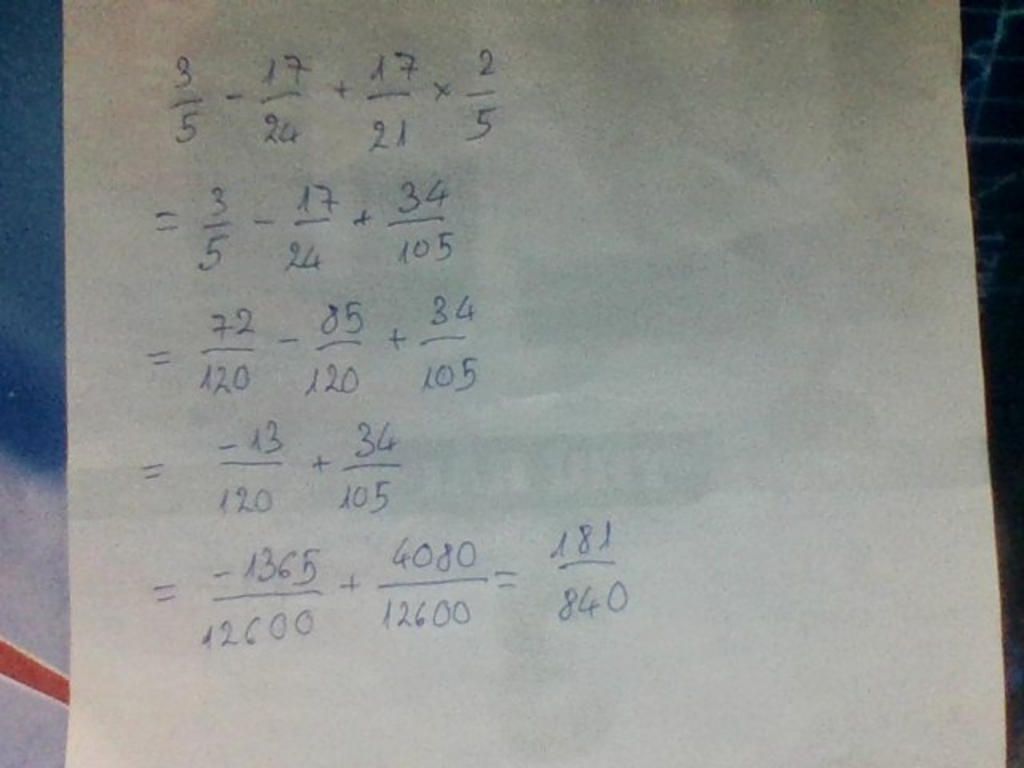 3/5 - 17/24 + 17/21 × 2/5
= 3/5 - 17/24 + 34/105
= 72/120 - 85/120 + 34/105
= -13/120 + 34/105
= -1365/12600 + 4080/12600 = 181/840